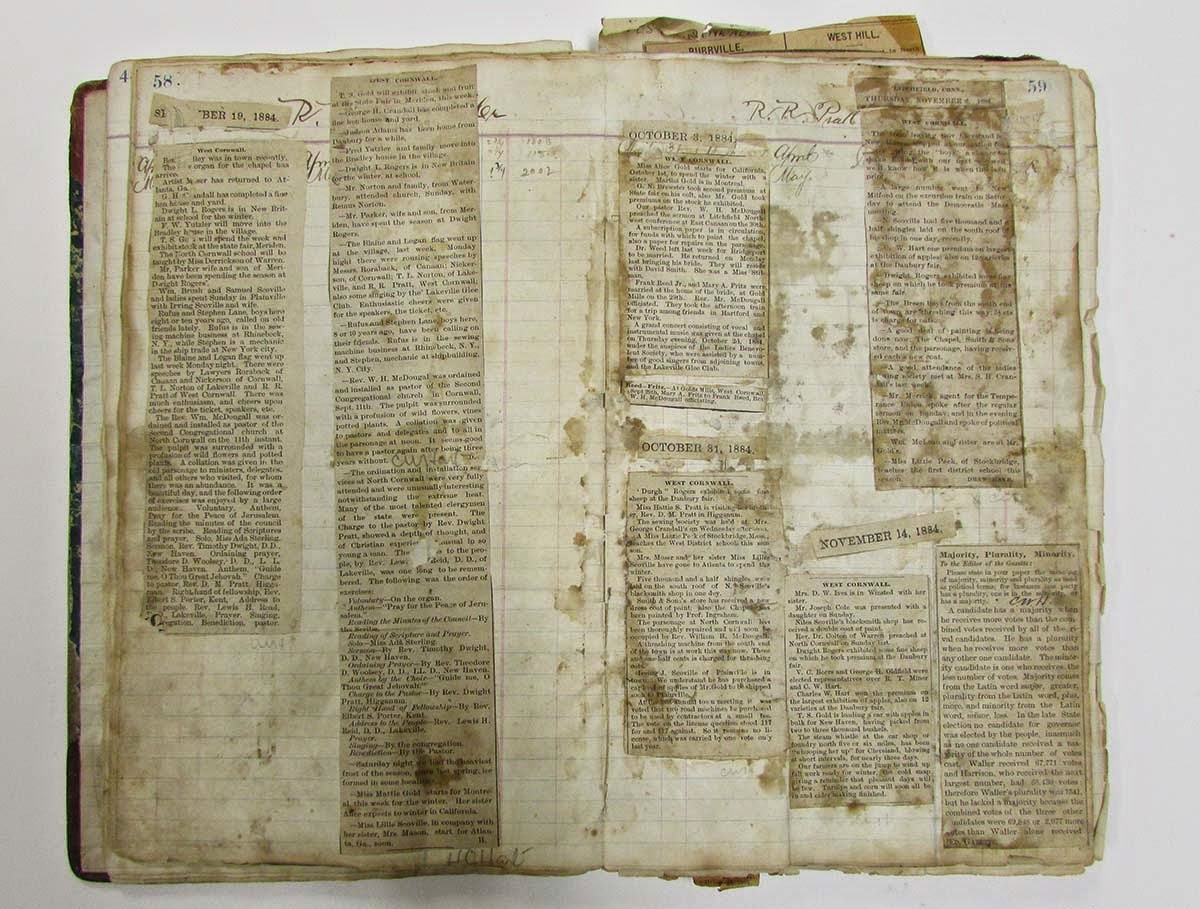 BURRVILLE.
WEST HILL.
4
58.
BER 19, 1884.
West Cornwall.
Rev. ley was in town recently,
The organ for the chapel has
arrived.
Artist Moser has returned to At-
lanta, Ga.
G. H. Crandall has completed a fine
hen house and yard.
Dwight L. Rogers is in New Brit-
ain at school for the winter.
F. W. Yutzler will move into the
Bradley house in the village.
T. S. Gold will spend the week and
exhibit stock at the state fair, Meriden.
The North Cornwall school will be
taught by Miss Derrickson of Warren.
Mr. Parker wife and son of Meri-
den have been spending the season at
Dwight Rogers'.
Wm. Brush and Samuel Scoville
and ladies spent Sunday in Plainville
with Irving Scoville and wife.
Rufus and Stephen Lane, boys here
eight or ten years ago, called on old
friends lately. Rufus is in the sew-
ing machine business at Rhinebeck,
N. Y., while Stephen is a mechanic
in the ship trade at New York city.
The Blaine and Logan flag went up
last week Monday night. There were
speeches by Lawyers Roraback of
Canaan and Nickerson of Cornwall,
T. L. Norton of Lakeville and R. R.
Pratt of West Cornwall. There was
much enthusiasm, and cheers upon
cheers for the ticket, speakers, etc.
The Rev. Wm. McDougall was or-
dained and installed as pastor of the
Second Congregational church at
North Cornwall on the 11th instant.
The pulpit was surrounded with a
profusion of wild flowers and potted
plants. A collation was given in the
old parsonage to ministers, delegates,
and all others who visited, for whom
there was an abundance. It was a
beautiful day, and the following order
of exercises was enjoyed by a large
audience. Voluntary, Anthem,
Pray for the Peace of Jerusalem.
Reading the minutes of the council
by the scribe. Reading of Scriptures
and prayer, Solo, Miss Ada Sterling.
Sermon, Rev. Timothy Dwight, D.D.,
New Haven. Ordaining prayer,
Theodore D. Woolsey, D. D., L. L.
D., New Haven. Anthem, "Guide
me, O Thou Great Jehovah" Charge
to pastor, Rev. D. M. Pratt, Higga-
num. Right hand of fellowship, Rev.
Elbert S. Porter, Kent. Address to
the people, Rev. Lewis H. Reid,
Lakeville. Prayer, Singing,
Congregation. Benediction, pastor.
WEST CORNWALL.
T. S. Gold will exhibit stock and fruit
at the State Fair in Meriden, this week.
George H. Crandall has completed a
fine hen house and yard.
Judson Adams has been home from
Danbury for a while.
Fred Yutzler and family move into
the Bradley house in the village.
Dwight L. Rogers is in New Britain
for the winter, at school.
Mr. Norton and family, from Water-
bury, attended church, Sunday, with
Remus Norton.
—Mr. Parker, wife and son, from Mer-
iden, have spent the season at Dwight
Rogers.
—The Blaine and Logan flag went up
at the village, last week, Monday
night there were rousing speeches by
Messrs. Roraback, of Canaan; Nicker-
son, of Cornwall; T. L. Norton, of Lake-
ville, and R. R. Pratt, West Cornwall,
also some singing by the Lakeville Glee
Club. Enthusiastic cheers were given
for the speakers, the ticket, etc.
—Rufus and Stephen Lane, boys here,
8 or 10 years ago, have been calling on
their friends. Rufus is in the sewing
machine business at Rhinebeck, N. Y.,
and Stephen, mechanic at shipbuilding,
N. Y. City.
—Rev. W. H. McDougal was ordained
and installed as pastor of the Second
Congregational church in Cornwall,
Sept. 11th. The pulpit was surrounded
with a profusion of wild flowers, vines
potted plants. A collation was given
to pastors and delegates and to all in
the parsonage at noon. It seems good
to have a pastor again after being three
years without.
—The ordination and installation ser-
vices at North Cornwall were very fully
attended and were unusually interesting
notwithstanding the extreme heat.
Many of the most talented clergymen
of the state were present. The
Charge to the pastor by Rev. Dwight
Pratt, showed a depth of thought, and
of Christian experience unusual to so
young a man. The address to the peo-
ple, by Rev. Lewis Reid, D. D., of
Lakeville, was one long to be remem-
bered. The following was the order of
exercises:
Voluntary—On the organ.
Anthem—"Pray for the Peace of Jeru-
salem."
Reading the Minutes of the Council—By
the Scribe.
Reading of Scripture and Prayer.
Solo—Miss Ada Sterling.
Sermon—By Rev. Timothy Dwight,
D. D., New Haven.
Ordaining Prayer—By Rev. Theodore
D. Woolsey, D. D., LL. D., New Haven.
Anthem by the Choir—"Guide me, O
Thou Great Jehovah."
Charge to the Pastor—By Rev. Dwight
Pratt, Higganum.
Right Hand of Fellowship—By Rev.
Elbert S. Porter, Kent.
Address to the People—Rev. Lewis H.
Reid, D. D., Lakeville.
Prayer.
Singing—By the congregation.
Benediction—By the Pastor.
—Saturday night we had the heaviest
frost of the season, since last spring, ice
formed in some localities.
—Miss Mattie Gold starts for Montre-
al this week for the winter. Her sister
Alice expects to winter in California.
—Miss Lillie Scoville, in company with
her sister, Mrs. Mason, start for Atlan-
ta, Ga., soon. H.
2002
59
R. R. Pratt
April
May
OCTOBER 3, 1884.
WEST CORNWALL.
Miss Alice Gold starts for California,
October 1st, to spend the winter with a
sister. Martha Gold is in Montreal.
G. N. Brewster took second premiums at
State fair on his colt, also Mr. Gold took
premiums on the stock he exhibited.
Our pastor Rev. W. H. McDougal
preached the sermon at Litchfield North
west conference at East Canaan on the 30th.
A subscription paper is in circulation
for funds with which to paint the chapel,
also a paper for repairs on the parsonage.
Dr. Weed left last week for Bridgeport
to be married. He returned on Monday
last bringing his bride. They will reside
with David Smith. She was a Miss Still-
man.
Frank Reed Jr., and Mary A. Fritz were
married at the home of the bride, at Gold
Mills on the 29th. Rev. Mr. McDougal
officiated. They took the afternoon train
for a trip among friends in Hartford and
New York.
A grand concert consisting of vocal and
instrumental music was given at the chapel
on Thursday evening, October 2d, 1884,
under the auspices of the Ladies Benevo-
lent Society, who were assisted by a num-
ber of good singers from adjoining towns,
and the Lakeville Glee Club.
Reed—Fritz.—At Golds Mills, West Cornwall,
Sept 29th, Mary A. Fritz to Frank Reed, Rev.
W. H. McDougall officiating.
OCTOBER 31, 1884.
WEST CORNWALL.
"Durgh" Rogers exhibited some fine
sheep at the Danbury fair.
Miss Hattie S. Pratt is visiting her broth-
er, Rev. D. M. Pratt in Higganum.
The sewing society was held at Mrs.
George Crandall's on Wednesday afternoon.
A Miss Lizzie Peck of Stockbridge, Mass.,
teaches the West District school this sea-
son.
Mrs. Moser and her sister Miss Lillie
Scoville have gone to Atlanta to spend the
winter.
Five thousand and a half shingles were
laid on the south roof of N. Scoville's
blacksmith shop in one day.
Smith & Son's store has received a new
dress coat of paint; also the Chapel has
been painted by Prof. Ingraham.
The parsonage at North Cornwall has
been thoroughly repaired and will soon be
occupied by Rev. William H. McDougall.
A threshing machine from the south end
of the town is at work this way now. Three
and one half cents is charged for thrashing
oats.
J. Scoville of Plainville is in
town. We understand he has purchased a
car load of apples of Mr. Gold to be shipped
soon to Plainville.
At the annual town meeting it was
voted that two road machines be purchased
to be used by contractors at a small fee.
The vote on the license question stood 117
for and 117 against. So it remains no li-
cense, which was carried by one vote only
last year.
LITCHFIELD, CONN.,
THURSDAY NOVEMBER 6, 1884.
WEST CORNWALL.
A large number went to New
Milford on the excursion train on Satur-
day to attend the Democratic Mass
meeting.
N. Scoville had five thousand and a
half shingles laid on the south roof of
his shop in one day, recently.
C. W. Hart won premiums on largest
exhibition of apples; also on 12 varieties
at the Danbury fair.
Dwight Rogers exhibited some fine
sheep on which he took premiums at the
same fair.
The Breen boys from the south end
of town are thrashing this way; 3½ cts
is charge for oats.
—A good deal of painting is being
done now. The Chapel, Smith & Sons
store, and the parsonage, having receiv-
ed each a new coat.
—A good attendance of the ladies
sewing society met at Mrs. S. H. Cran-
dall's last week.
—Mr. Morris, agent for the Tempe-
rance Union spoke after the regular
sermon on Sunday; and in the evening
Rev. Mr. McDougall and spoke of political
matters.
Wm. McLean and sister are at Mr.
Gold's.
—Miss Lizzie Peck, of Stockbridge,
teaches the first district school this
season.
NOVEMBER 14, 1884.
WEST CORNWALL.
Mrs. D. W. Ives is in Winsted with her
sister.
Mr. Joseph Cole was presented with a
daughter on Sunday.
Niles Scoville's blacksmith shop has re-
ceived a double coat of paint.
Rev. Dr. Colton of Warren preached at
North Cornwall on Sunday last.
Dwight Rogers exhibited some fine sheep
on which he took premium at the Danbury
fair.
V. C. Beers and George H. Oldfield were
elected representatives over R. T. Miner
and C. W. Hart.
Charles W. Hart won the premium on
the largest exhibition of apples, also on 12
varieties at the Danbury fair.
T. S. Gold is loading a car with apples in
bulk for New Haven, having picked from
two to three thousand bushels.
The steam whistle at the car shop or
foundry north five or six miles, has been
"whooping her up" for Cleveland, blowing
at short intervals, for nearly three days.
Our farmers are on the jump to wind up
fall work ready for winter, the cold snap
giving a reminder that pleasant days will
be few. Turnips and corn will soon all be
in and cider making finished.
Majority, Plurality, Minority.
To the Editor of the Gazette:
Please state in your paper the meaning
of majority, minority and plurality as used
in political terms; for instance one party
has a plurality, one is in the minority, one
has a majority.
A candidate has a majority when
he receives more votes than the com-
bined votes received by all of the ri-
val candidates. He has a plurality
when he receives more votes than
any other one candidate. The minor-
ity candidate is one who receives the
less number of votes. Majority comes
from the Latin word major, greater,
plurality from the Latin word, plus,
more, and minority from the Latin
word, minor, less. In the late State
election no candidate for governor
was elected by the people, inasmuch
as no one candidate received a ma-
jority of the whole number of votes
cast. Waller received 67,771 votes
and Harrison, who received the next
largest number, had 66,430 votes;
therefore Waller's plurality was 1341,
but he lacked a majority because the
combined votes of the three other
candidates were 69,848 or 2,077 more
votes than Waller alone received
ED. GAZETTE.